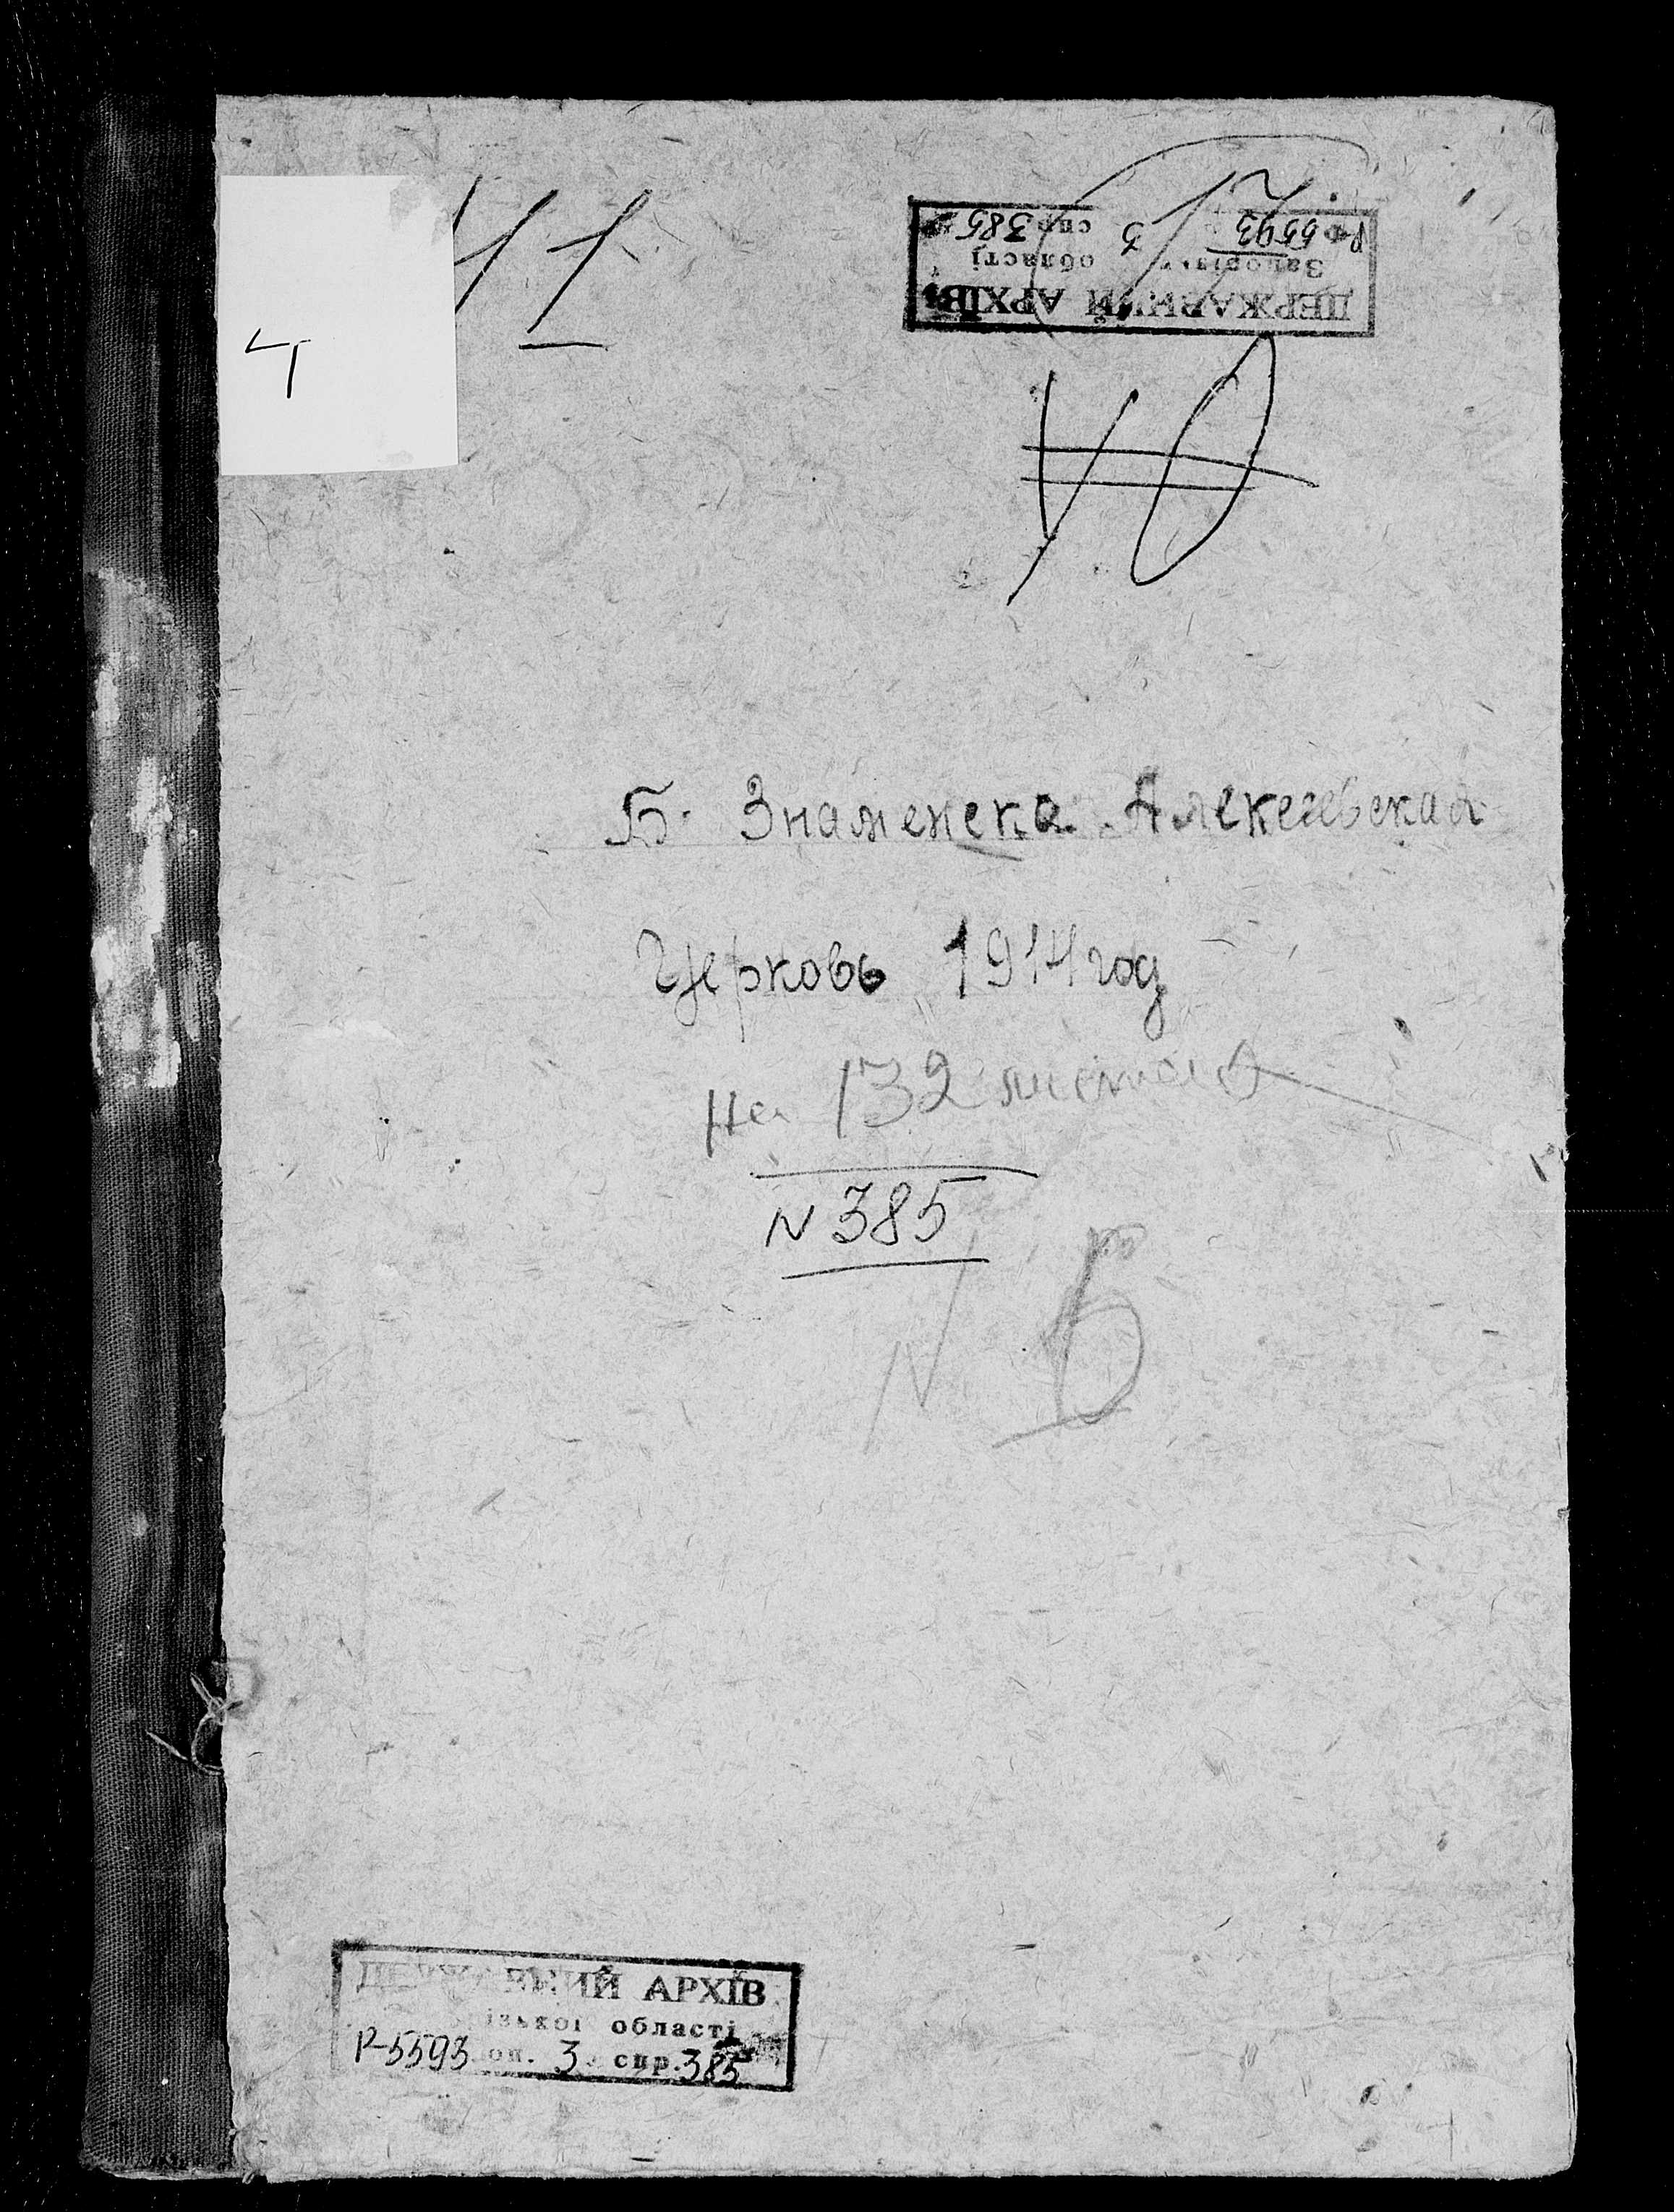 11
4
ДЕРЖАВНИЙ АРХІВ
області
Р-5593 3 спр. 385
Б. Знаменска Алексеевская
Церковь 1914 год
На 132 листах
N 385
N Б
ДЕРЖАВНИЙ АРХІВ
ізької області
Р-5593 оп. 3 спр. 385